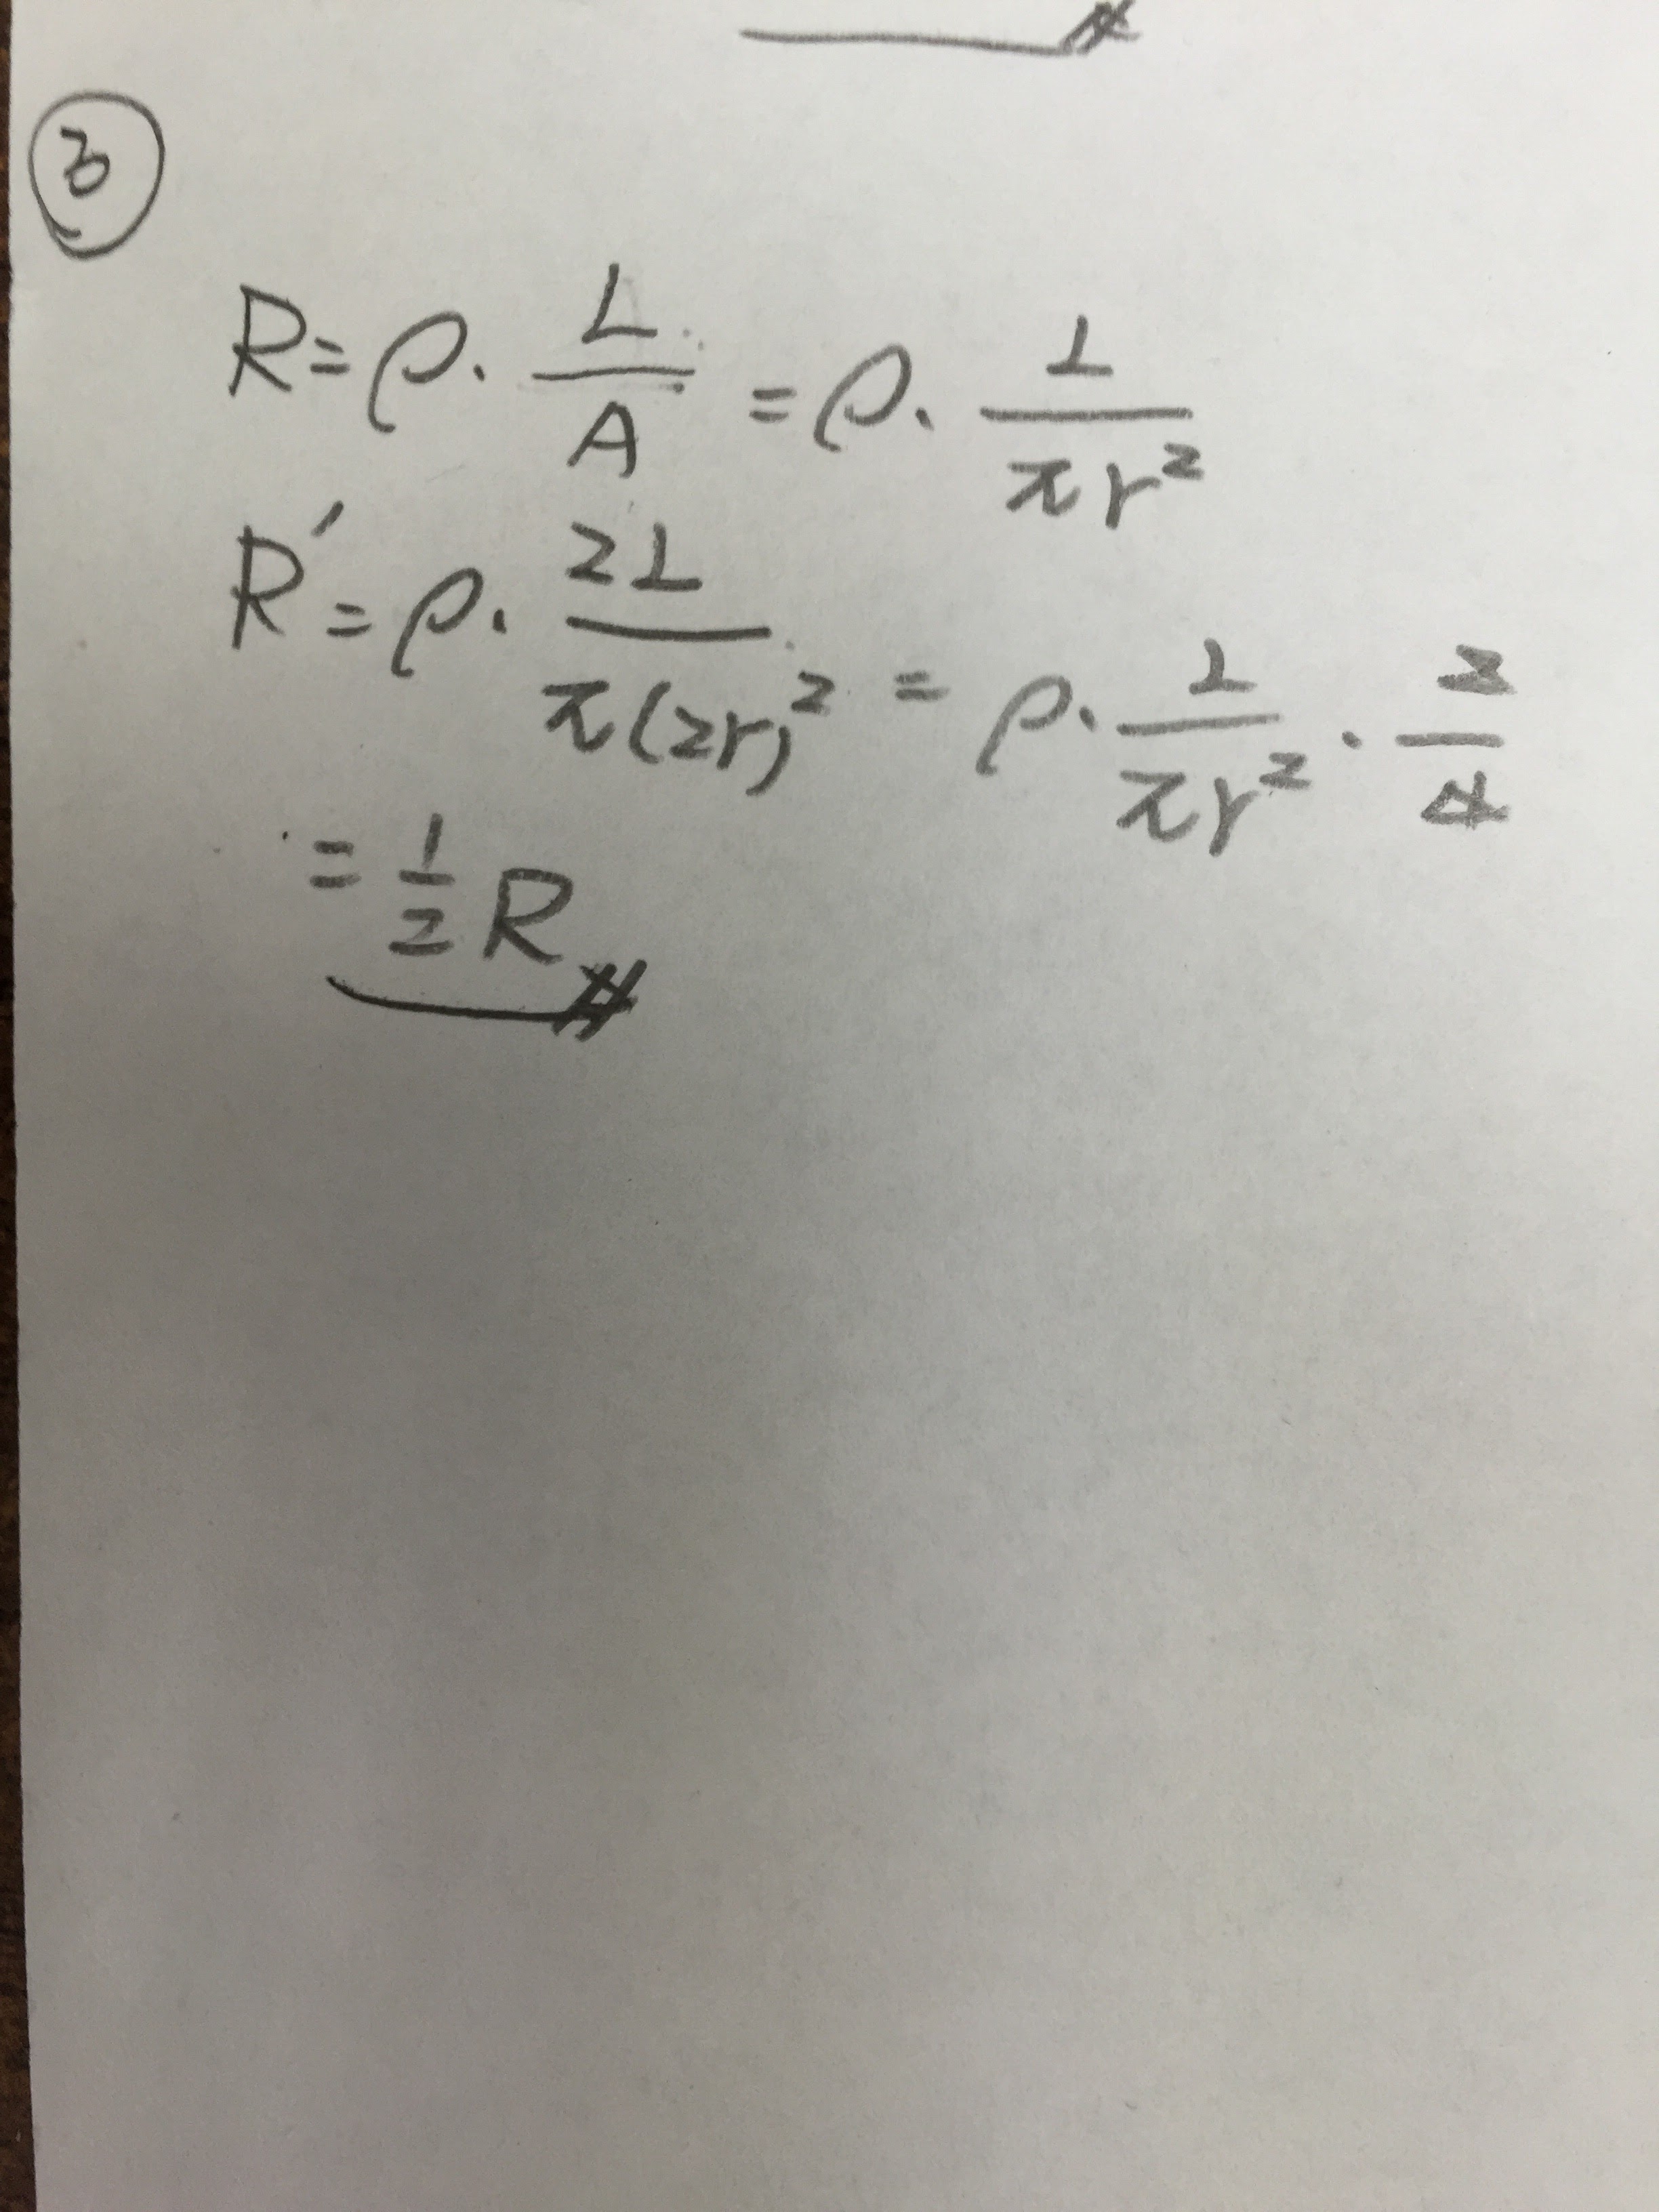 ③
R = ρ · L/A = ρ · L/πr²
R' = ρ · 2L/π(2r)² = ρ · L/πr² · 2/4
= 1/2 R